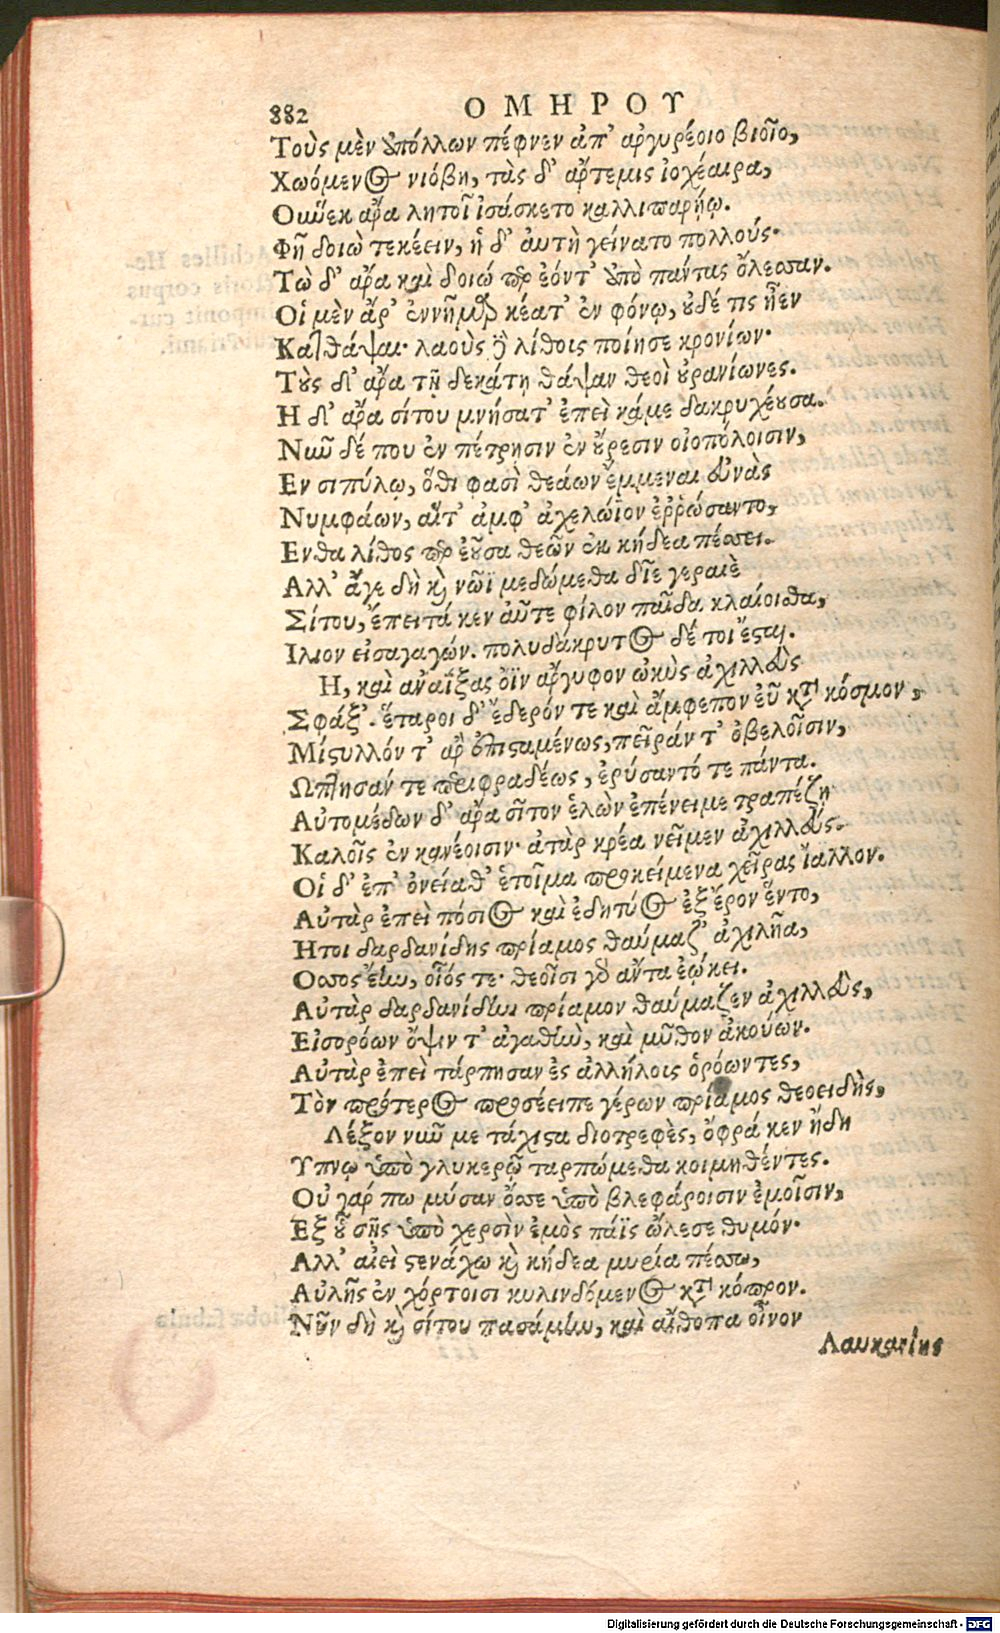 882 ΟΜΗΡΟΥ
Τοὺς μὲν ἀπόλλων πέφνεν ἀπ' ἀργυρέοιο βιοῖο,
Χωόμενος νιόβῃ, τὰς δ' ἄρτεμις ἰοχέαιρα,
Οὕνεκ ἄρα λητοῖ ἰσάσκετο καλλιπαρῄῳ.
Φῆ δοιὼ τεκέειν, ἡ δ' αὐτὴ γείνατο πολλούς·
Τὼ δ' ἄρα καὶ δοιώ περ ἐόντ' ἀπὸ πάντας ὄλεσσαν.
Οἱ μὲν ἄρ' ἐννῆμαρ κέατ' ἐν φόνῳ, οὐδέ τις ἦεν
Κατθάψαι· λαοὺς δὲ λίθοις ποίησε κρονίων·
Τοὺς δ' ἄρα τῇ δεκάτῃ θάψαν θεοὶ οὐρανίωνες.
Η δ' ἄρα σίτου μνήσατ' ἐπεὶ κάμε δακρυχέουσα.
Νῦν δέ που ἐν πέτρῃσιν ἐν οὔρεσιν οἰοπόλοισιν,
Εν σιπύλῳ, ὅθι φασὶ θεάων ἔμμεναι εὐνὰς
Νυμφάων, αἵτ' ἀμφ' ἀχελώϊον ἐῤῥώσαντο,
Ενθα λίθος περ ἐοῦσα θεῶν ἐκ κήδεα πέσσει.
Αλλ' ἄγε δὴ καὶ νῶϊ μεδώμεθα δῖε γεραιὲ
Σίτου, ἔπειτά κεν αὖτε φίλον παῖδα κλαίοισθα,
Ιλιον εἰσαγαγών. πολυδάκρυτος δέ τοι ἔσται.
Η, καὶ ἀναΐξας ὄϊν ἄργυφον ὠκὺς ἀχιλλεὺς
Σφάξ'. ἕταροι δ' ἔδερόν τε καὶ ἄμφεπον εὖ κατὰ κόσμον,
Μίστυλλόν τ' ἄρ ἐπισταμένως, πεῖράν τ' ὀβελοῖσιν,
Ωπτησάν τε περιφραδέως, ἐρύσαντό τε πάντα.
Αὐτομέδων δ' ἄρα σῖτον ἑλὼν ἐπένειμε τραπέζῃ
Καλοῖς ἐν κανέοισιν· ἀτὰρ κρέα νεῖμεν ἀχιλλεύς.
Οἱ δ' ἐπ' ὀνείαθ' ἑτοῖμα προκείμενα χεῖρας ἴαλλον.
Αὐτὰρ ἐπεὶ πόσιος καὶ ἐδητύος ἐξ ἔρον ἕντο,
Ητοι δαρδανίδης πρίαμος θαύμαζ' ἀχιλῆα,
Οσσος ἔην, οἷός τε· θεοῖσι γὰρ ἄντα ἐῴκει.
Αὐτὰρ δαρδανίδην πρίαμον θαύμαζεν ἀχιλλεὺς,
Εἰσορόων ὄψιν τ' ἀγαθὴν, καὶ μῦθον ἀκούων.
Αὐτὰρ ἐπεὶ τάρπησαν ἐς ἀλλήλοις ὁρόωντες,
Τὸν πρότερος προσέειπε γέρων πρίαμος θεοειδὴς,
Λέξον νῦν με τάχιστα διοτρεφὲς, ὄφρά κεν ἤδη
Υπνῳ ὑπὸ γλυκερῷ ταρπώμεθα κοιμηθέντες.
Οὐ γάρ πω μύσαν ὄσσε ὑπὸ βλεφάροισιν ἐμοῖσιν,
Εξ οὗ σῇς ὑπὸ χερσὶν ἐμὸς πάϊς ὤλεσε θυμόν·
Αλλ' αἰεὶ στενάχω καὶ κήδεα μυρία πέσσω,
Αὐλῆς ἐν χόρτοισι κυλινδόμενος κατὰ κόπρον.
Νῦν δὴ καὶ σίτου πασάμην, καὶ αἴθοπα οἶνον
Λαυκανίης
Digitalisierung gefördert durch die Deutsche Forschungsgemeinschaft - DFG